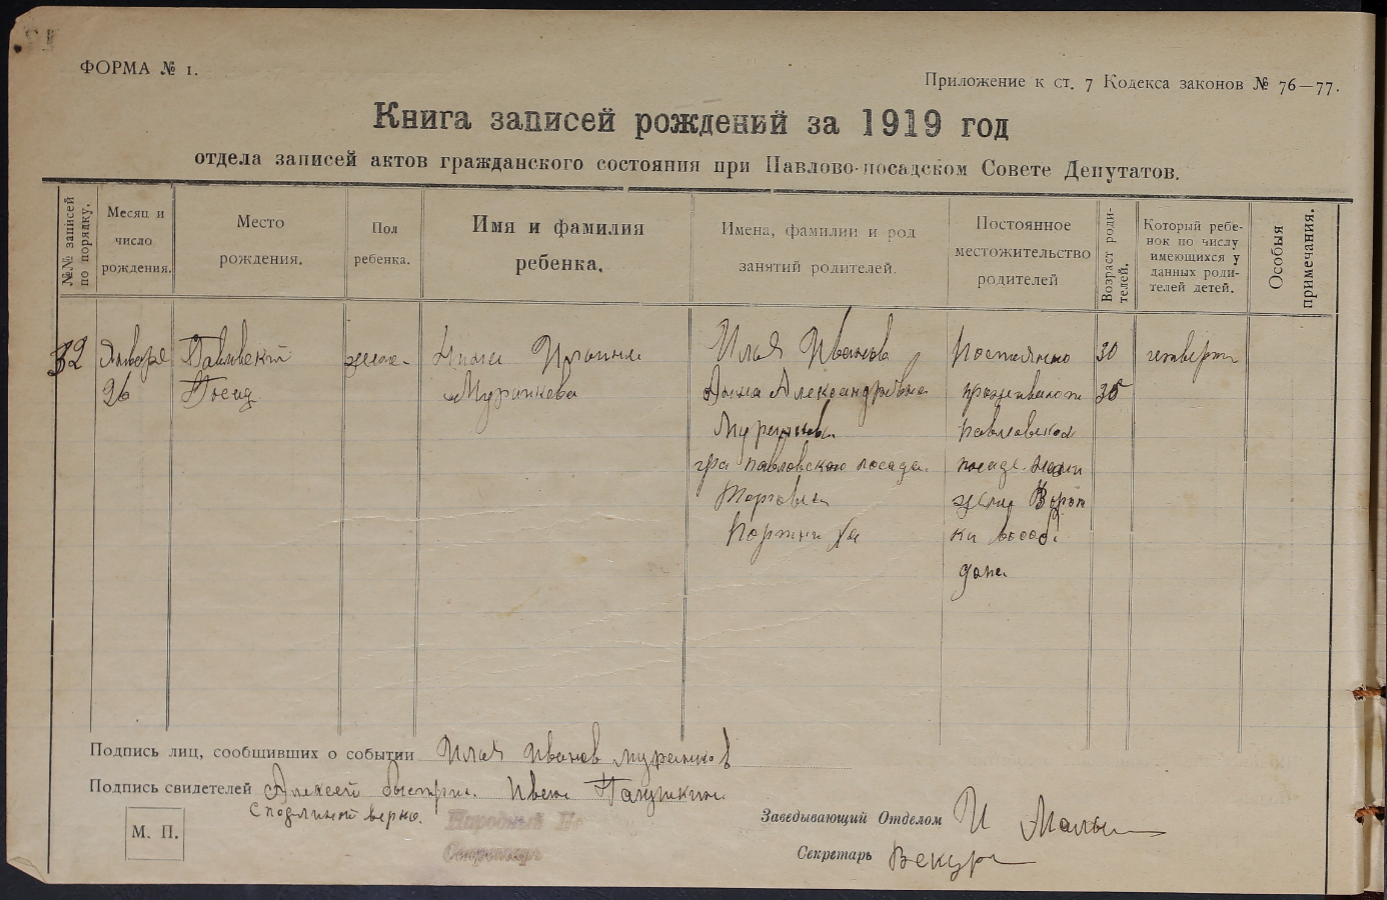 ФОРМА № 1.
Приложение к ст. 7 Кодекса законов № 76—77.
Книга записей рождений за 1919 год
отдела записей актов гражданского состояния при Павлово-посадском Совете Депутатов.
№№ записей по порядку.
Месяц и число рождения.
Место рождения.
Пол ребенка.
Имя и фамилия ребенка.
Имена, фамилии и род занятий родителей.
Постоянное местожительство родителей
Возраст родителей.
Который ребенок по числу имеющихся у данных родителей детей.
Особыя примечания.
32 Января Павловский жен. Нина Ильина Илья Иванов Постоянно 30 четверт
26 Посад Муранкова Анна Александровна проживают 35
Павловском
гра Павловского посада. посаде
Торговля
Подпись лиц, сообщивших о событии Илья Иванов
Подпись свидетелей Алексей Иван
С подлинной верно. Народный
Секретарь
М. П.
Заведывающий Отделом И
Секретарь